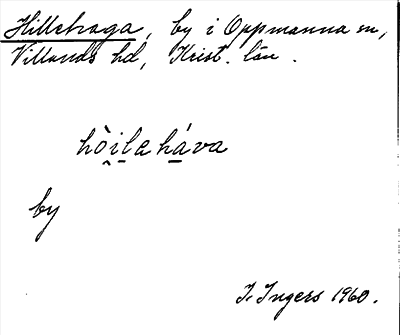 Hillehaga, by i Oppmanna sn,
Villands hd, Krist. län.
hòilaháva
by
I. Ingers 1960.